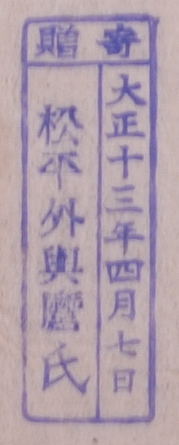 寄贈
大正十三年四月七日
松平外與麿氏